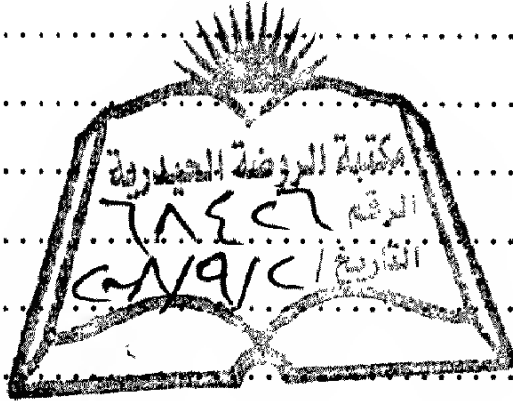 مكتبة الروضة الحيدرية
الرقم ٦٨٤٢٦
التاريخ